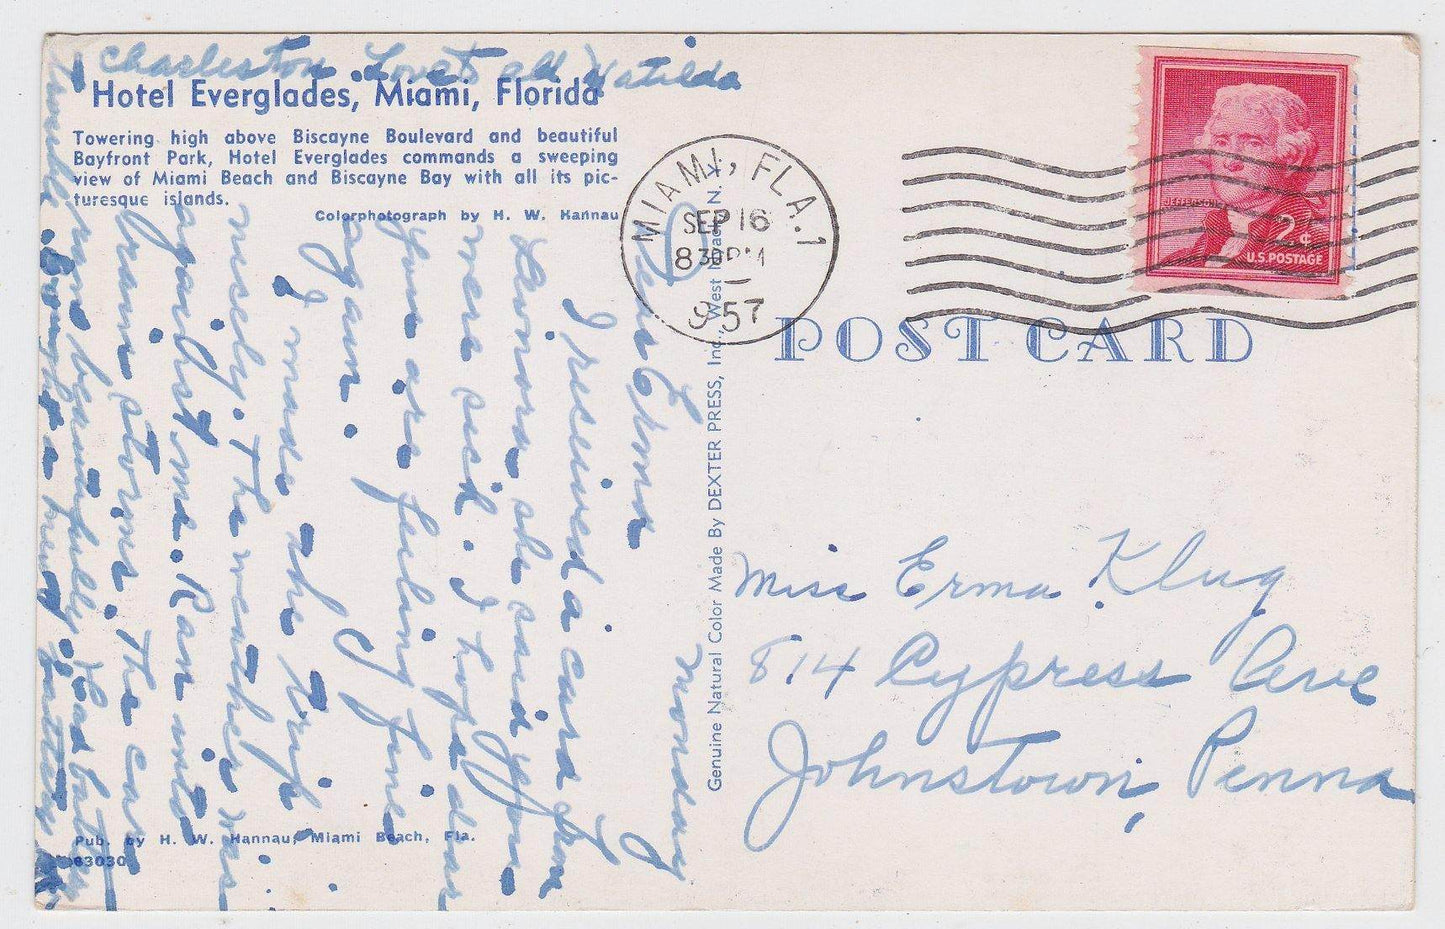 Charleston. Love to all Matilda
Hotel Everglades, Miami, Florida
Towering high above Biscayne Boulevard and beautiful
Bayfront Park, Hotel Everglades commands a sweeping
view of Miami Beach and Biscayne Bay with all its pic-
turesque islands.
Colorphotograph by H. W. Hannau
Monday
Dear Erma
I received a card from
Leonora she said you
were sick. I hope dear
you are feeling fine
again.
I made the trip
nicely. The weather was
against me. Ran into
rain storms. The car
ran beautifully. Had battery
trouble. Bought a new battery
Pub. by H. W. Hannau, Miami Beach, Fla.
63030
Genuine Natural Color Made By DEXTER PRESS, Inc., West Nyack, N. Y.
MIAMI, FLA. 1
SEP 16
830 PM
1957
JEFFERSON
2¢
U.S. POSTAGE
POST CARD
Miss Erma Klug
814 Cypress Ave
Johnstown, Penna